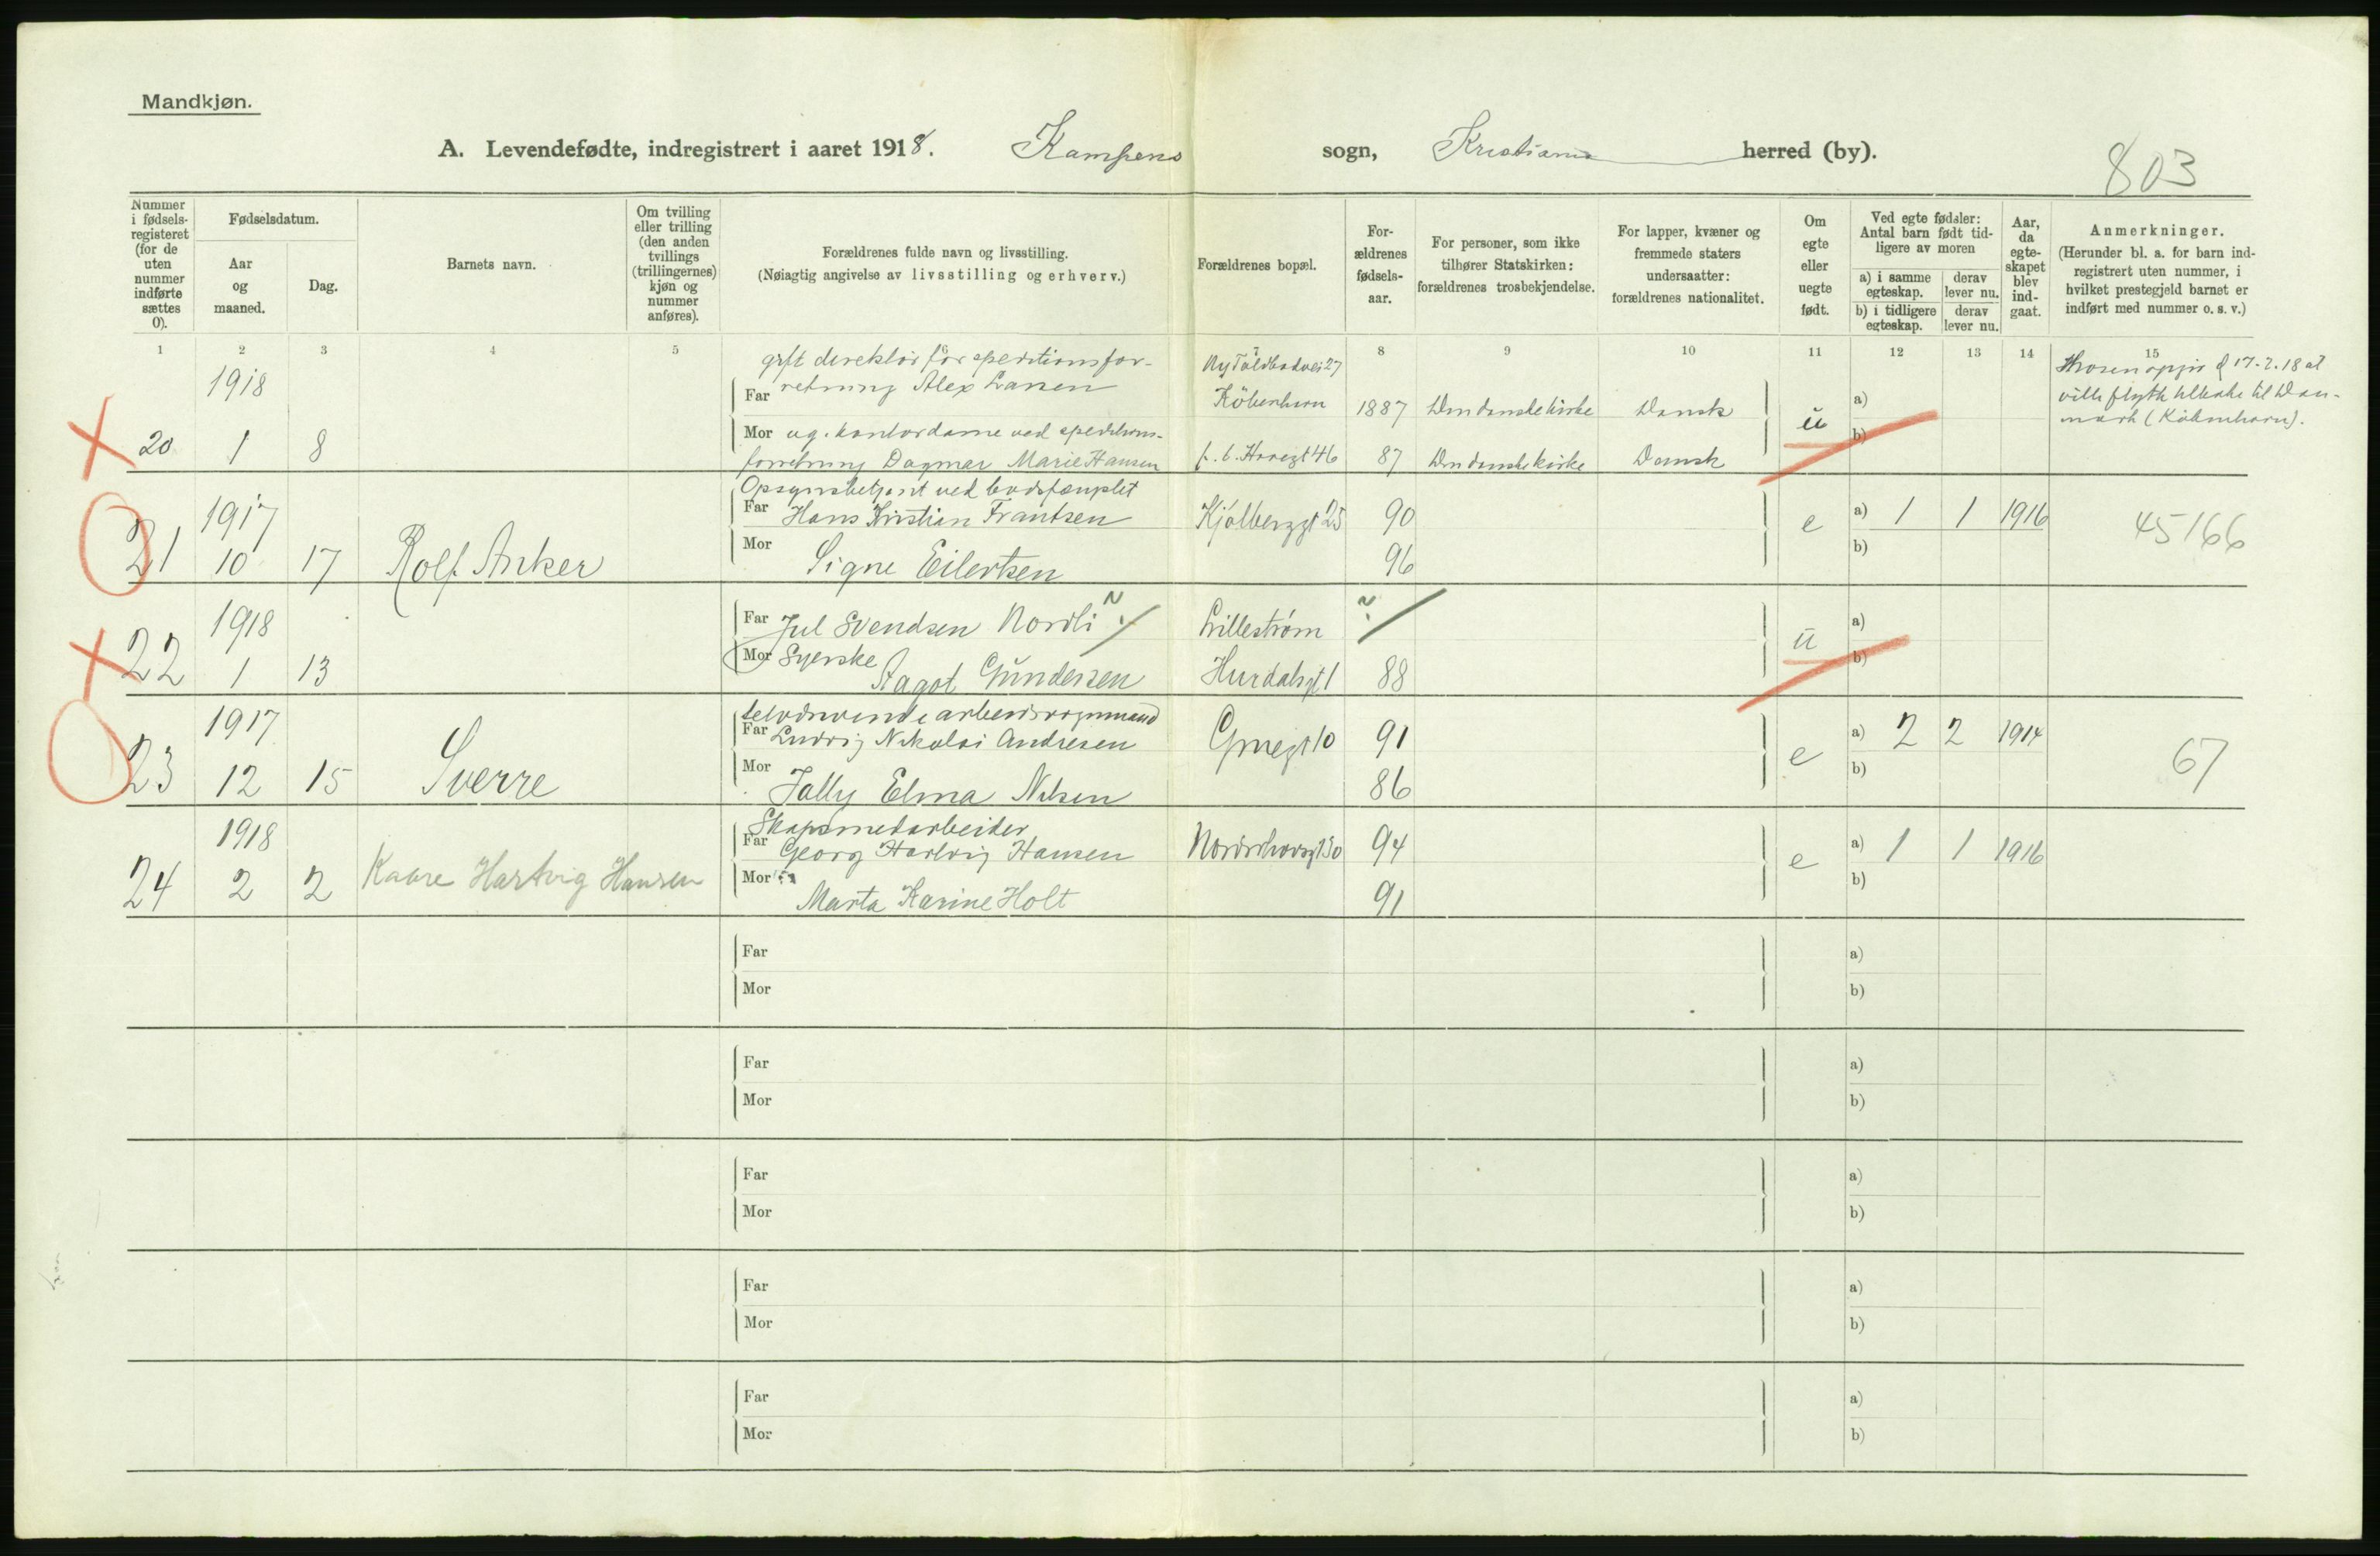 Mandkjøn.
A. Levendefødte, indregistrert i aaret 1918. Kampens sogn, Kristiania herred (by).
803
Nummer i fødsels-registeret (for de uten nummer indførte sættes 0).
Fødselsdatum.
Aar og maaned.
Dag.
Barnets navn.
Om tvilling eller trilling (den anden tvillings (trillingernes) kjøn og nummer anføres).
Forældrenes fulde navn og livsstilling.
(Nøiagtig angivelse av livsstilling og erhverv.)
Forældrenes bopæl.
For-ældrenes fødsels-aar.
For personer, som ikke tilhører Statskirken: forældrenes trosbekjendelse.
For lapper, kvæner og fremmede staters undersaatter: forældrenes nationalitet.
Om egte eller uegte født.
Ved egte fødsler: Antal barn født tid-ligere av moren
a) i samme egteskap.
derav lever nu.
b) i tidligere egteskap.
derav lever nu.
Aar, da egte-skapet blev ind-gaat.
Anmerkninger.
(Herunder bl. a. for barn ind-registrert uten nummer, i hvilket prestegjeld barnet er indført med nummer o. s. v.)
1 2 3 4 5 6 7 8 9 10 11 12 13 14 15
gift direktør for speditionsfor-
Far retning Alex Larsen
Mor ug. kontordame ved speditions-
forretning Dagmar Marie Hansen
20 1918 1 8
Ny Toldbodvei 27
København
1887 Den danske kirke Dansk
46 87 Den danske kirke Dansk
u
a)
b)
d 17-2.18 at
ville flytte tilbake til Dan-
mark (København).
Opsynsbetjent ved bodsfængslet
21 1917 10 17 Rolf Anker
Far Hans Kristian Frantsen
Mor Signe Eilertsen
Kjølberggt 25 90
96
e a) 1 1 1916
b)
45166
22 1918 1 13
Far Jul Svendsen Nordli
Mor Syerske Aagot Gundersen
Lillestrøm
Hurdalsgt 1 88
u
a)
b)
selvdrivende arbeidsvognmand
23 1917 12 15 Sverre
Far Ludvig Nikolai Andresen
Mor Jally Elma Nilsen
91
86
e a) 2 2 1914
b)
67
Skapsmedarbeider
24 1918 2 2 Kaare Hartvig Hansen
Far Georg Hartvig Hansen
Mor Marta Karine Holt
Nordrehovsgt 30 94
91
e a) 1 1 1916
b)
Far a)
Mor b)
Far a)
Mor b)
Far a)
Mor b)
Far a)
Mor b)
Far a)
Mor b)